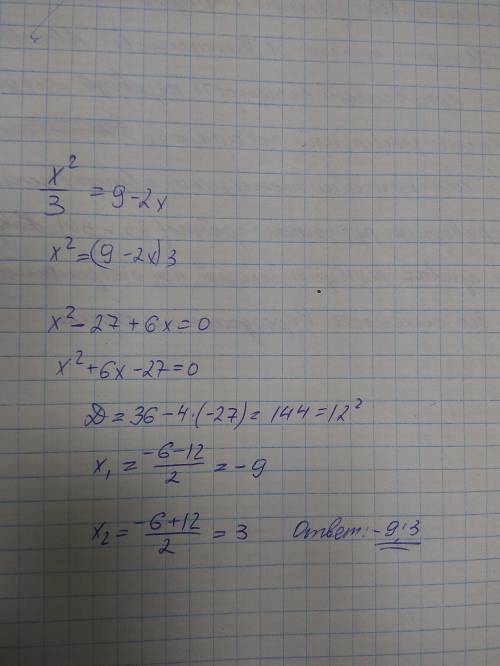 x²/3 = 9-2x
x² = (9-2x)3
x² - 27 + 6x = 0
x² + 6x - 27 = 0
D = 36 - 4·(-27) = 144 = 12²
x₁ = (-6-12)/2 = -9
x₂ = (-6+12)/2 = 3 Ответ: -9; 3